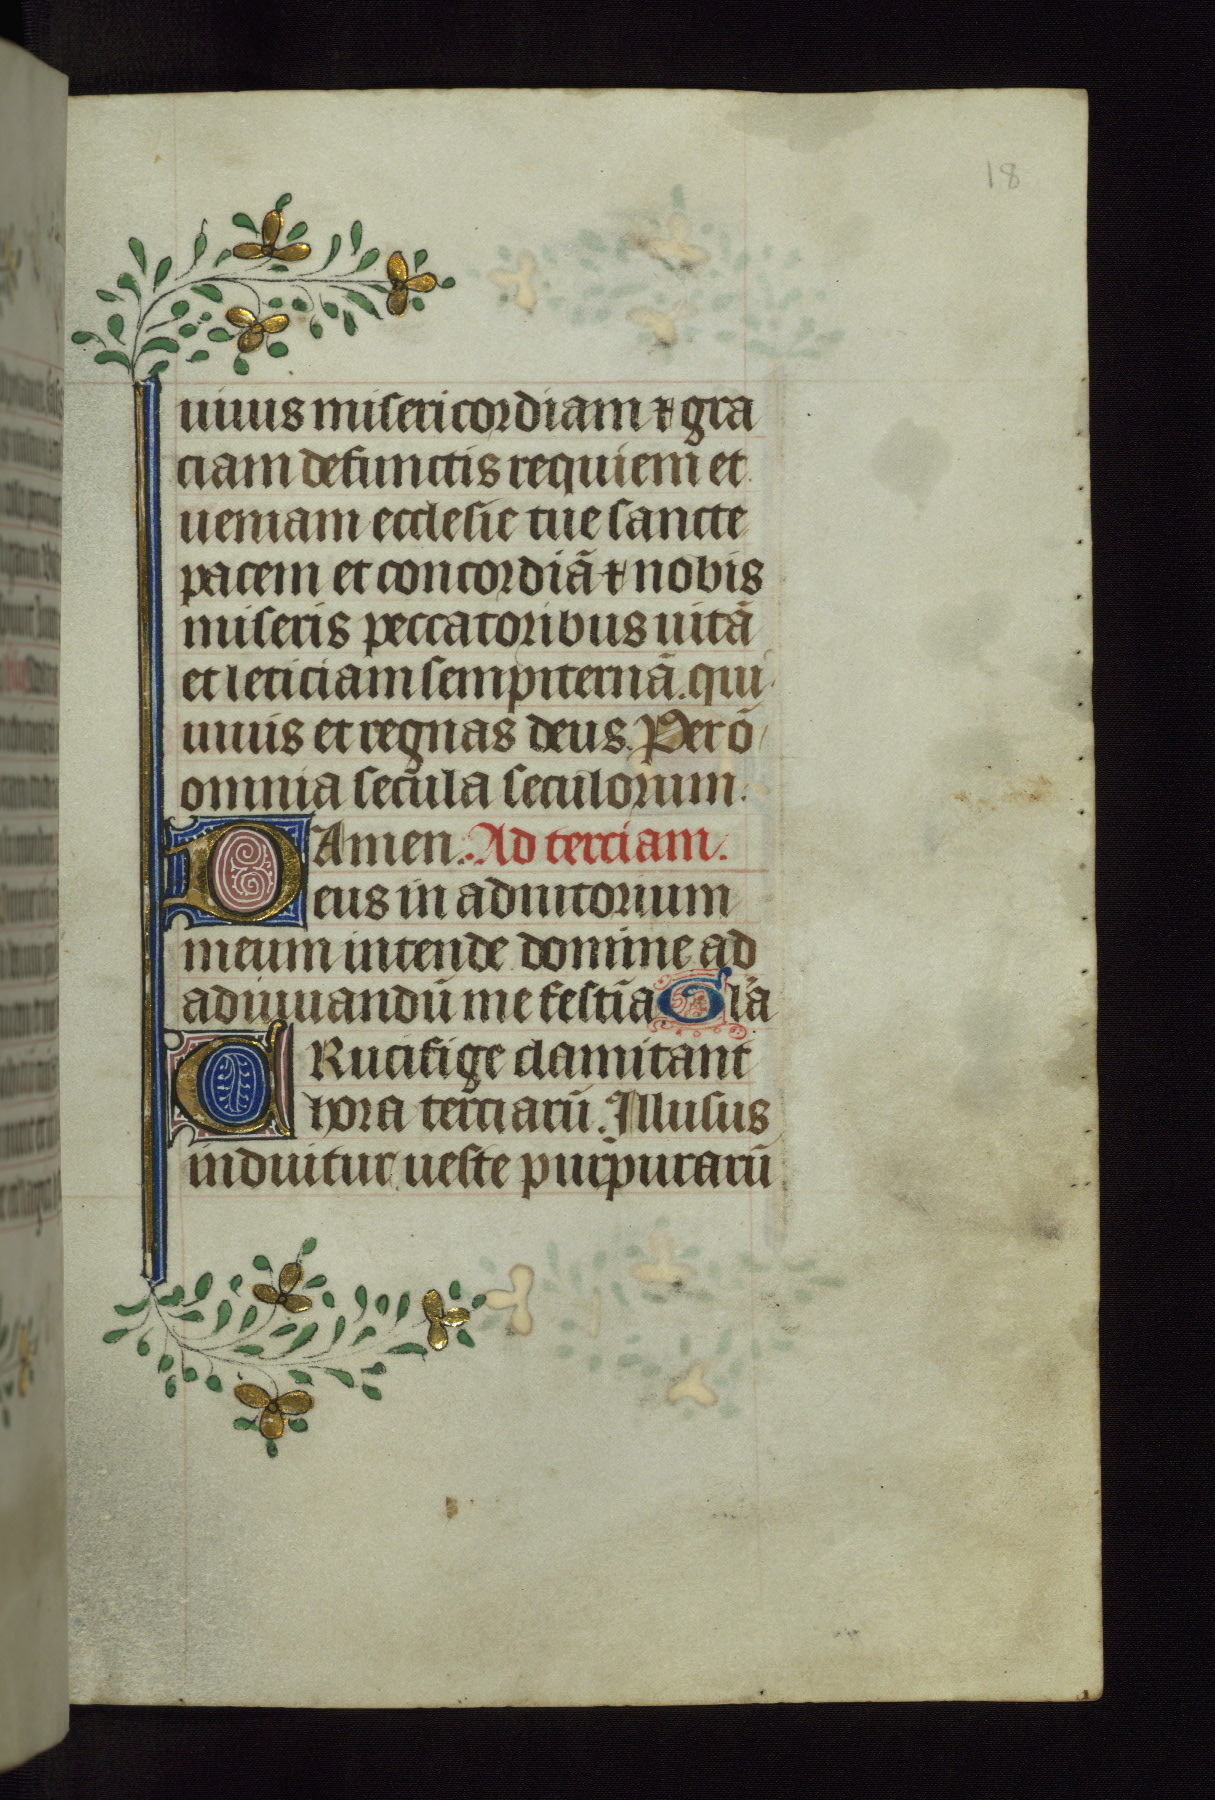 18
uiuus misericordiam ⁊ gra
ciam defunctis requiem et
ueniam ecclesie tue sancte
pacem et concordiā ⁊ nobis
miseris peccatoribus uitā
et leticiam sempiternā. qui
uiuis et regnas deus. Per ō
omnia secula seculorum.
Amen. Ad terciam.
Deus in adiutorium
meum intende domine ad
adiuuandū me festīa Gl'a
CRucifige clamitant
hora terciarū. Illusus
induitur ueste purpurarū